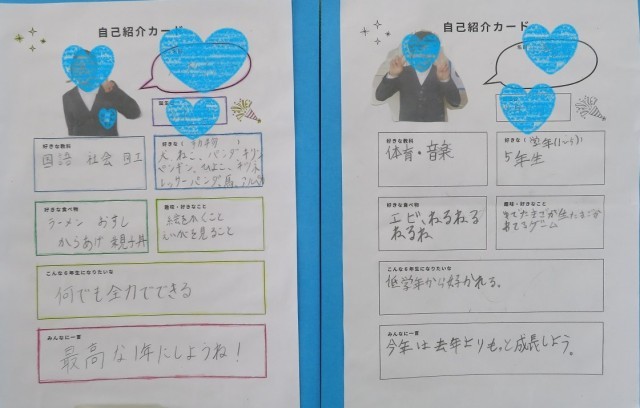 自己紹介カード
好きな教科
国語 社会 図工
好きな(動物)
犬、ねこ、パンダ、キリン
ペンギン、ひよこ、
レッサーパンダ、馬、
好きな食べ物
ラーメン おすし
からあげ 親子丼
趣味・好きなこと
絵をかくこと
えいがを見ること
こんな6年生になりたいな
何でも全力でできる
みんなに一言
最高な1年にしようね!
自己紹介カード
好きな教科
体育・音楽
好きな(学年(1〜6))
5年生
好きな食べ物
エビ、ねるねる
ねるね
趣味・好きなこと
ゆでたまごか生たまごか
あてるゲーム
こんな6年生になりたいな
低学年から好かれる。
みんなに一言
今年は去年よりもっと成長しよう。